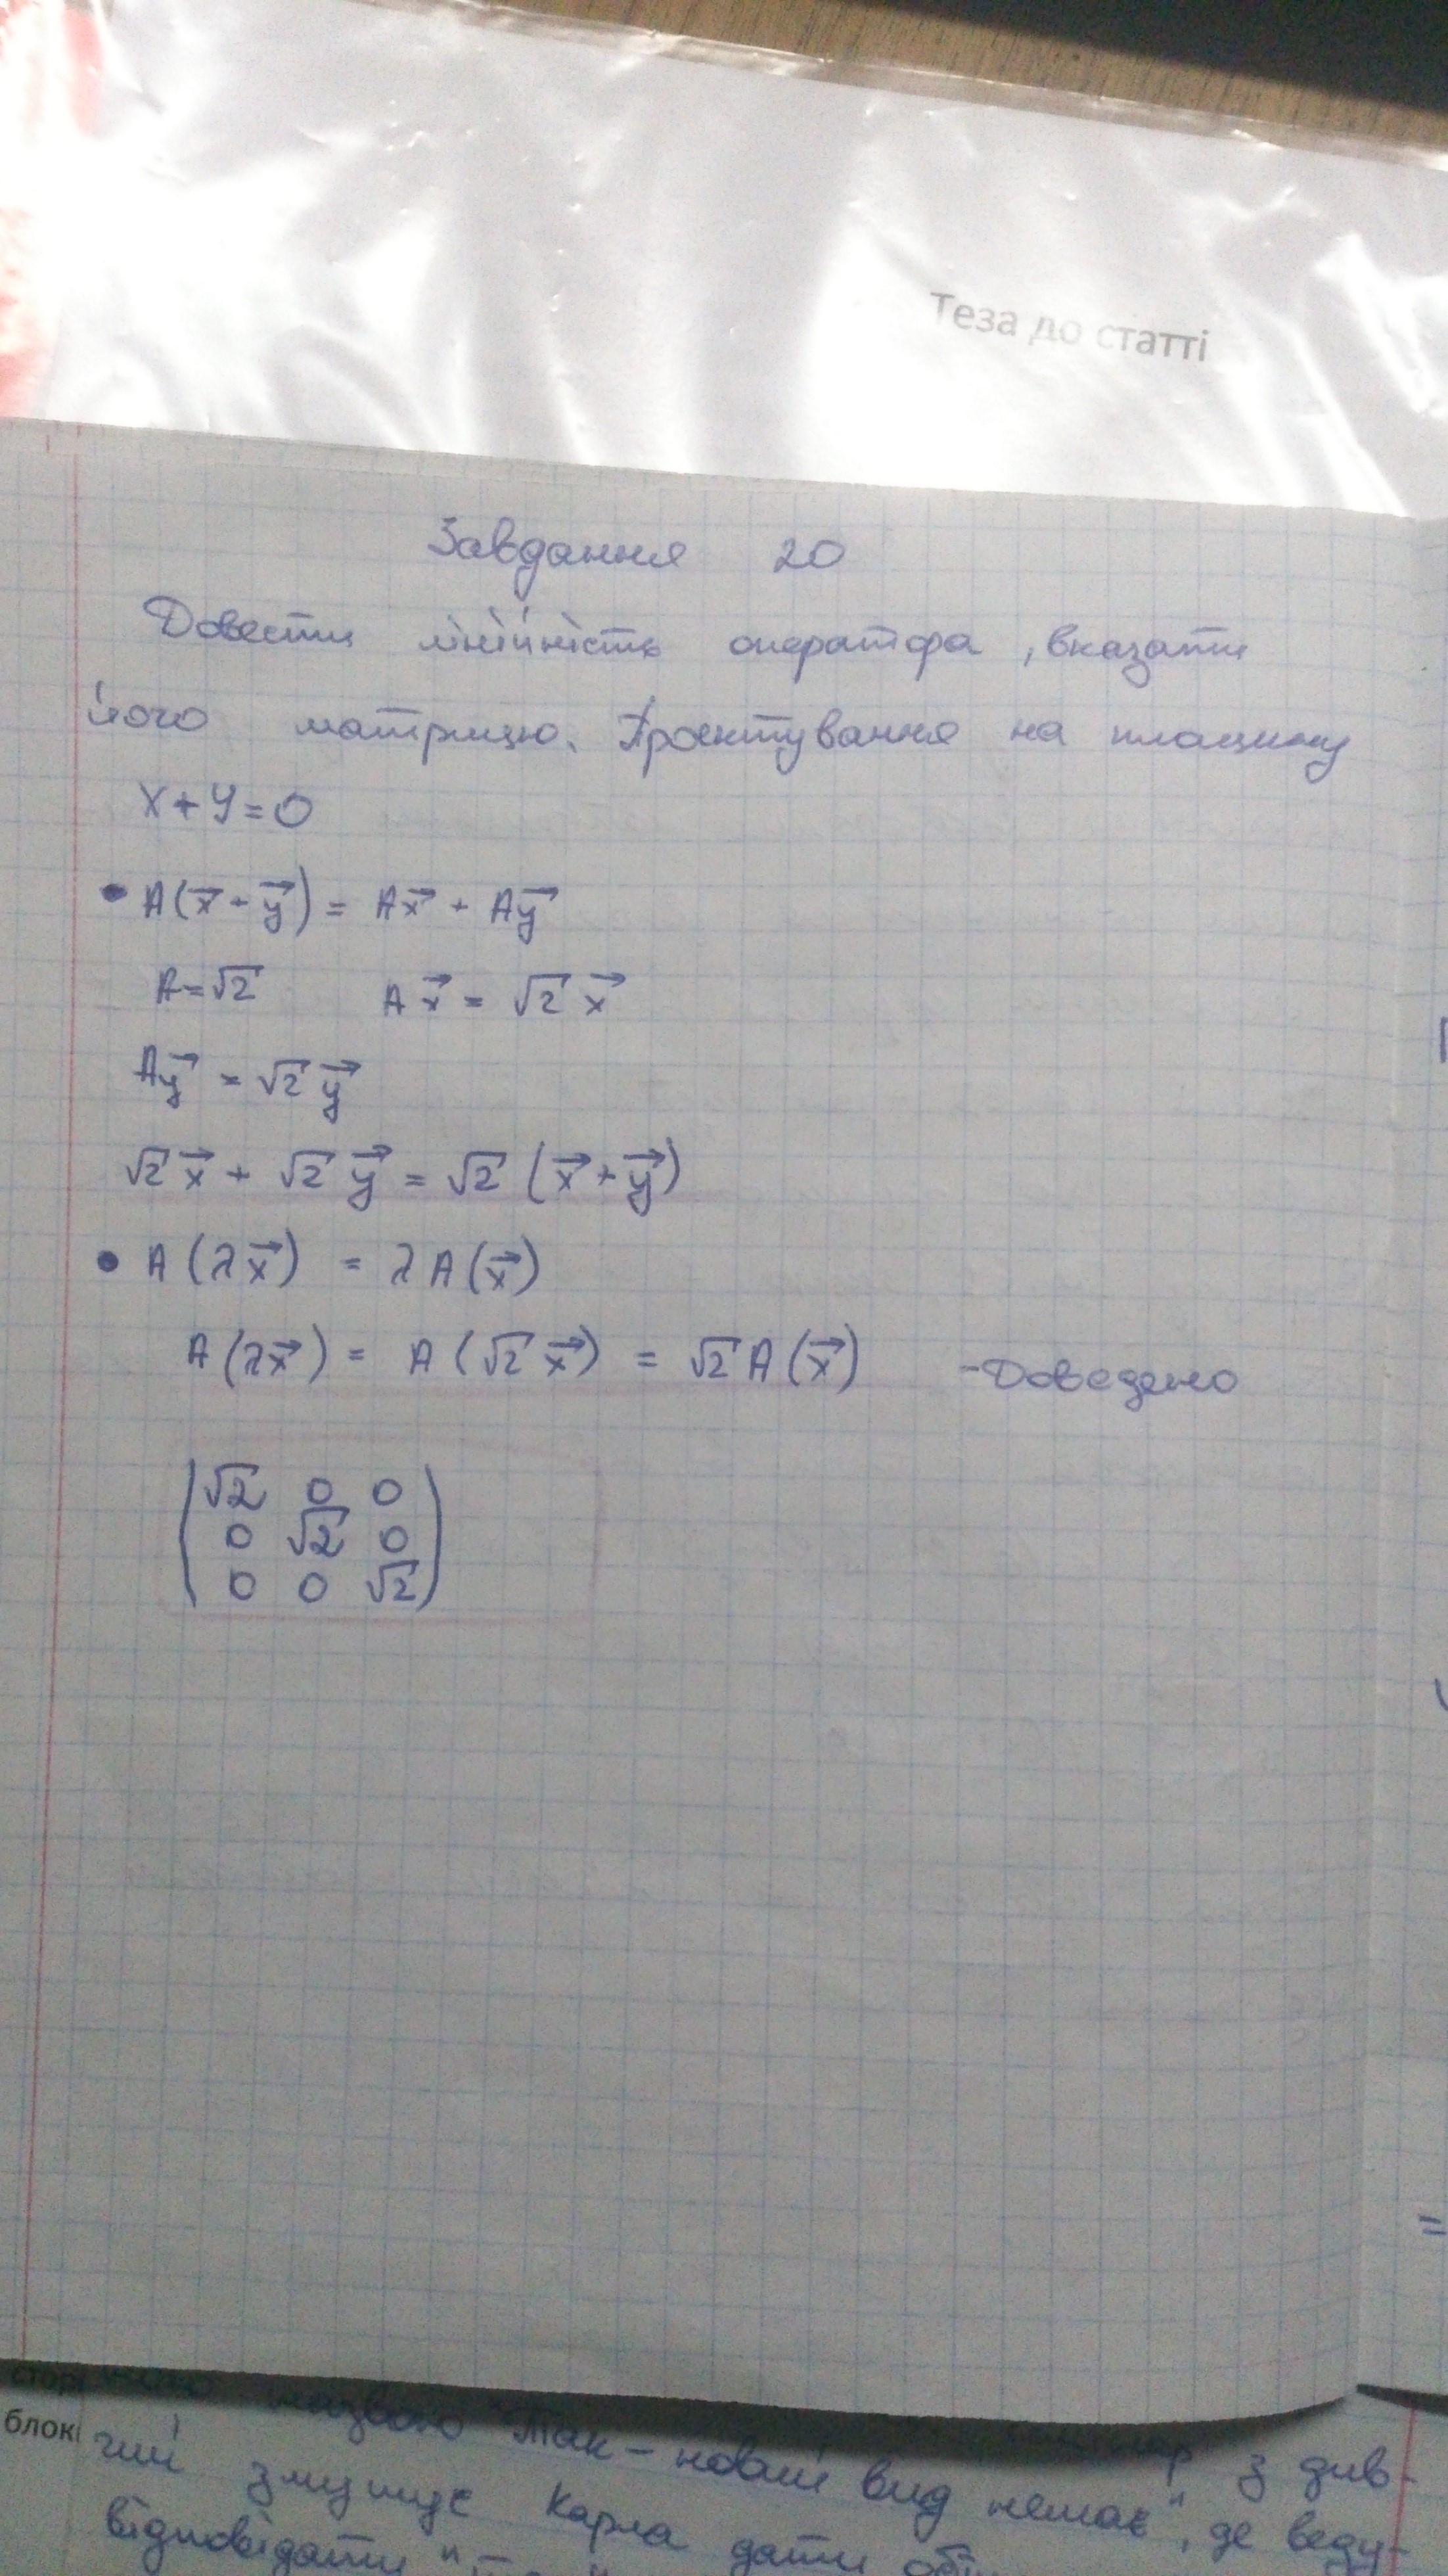 Теза до статті
Завдання 20
Довести лінійність оператора, вказати
його матрицю. Проєктування на площину
x+y=0
• A(x⃗+y⃗) = Ax⃗ + Ay⃗
A=√2 Ax⃗ = √2 x⃗
Ay⃗ = √2 y⃗
√2 x⃗ + √2 y⃗ = √2 (x⃗+y⃗)
• A(λx⃗) = λA(x⃗)
A(λx⃗) = A(√2 x⃗) = √2 A(x⃗) -Доведено
√2 0 0
0 √2 0
0 0 √2
=
блок
назвою "Так – новий вид немає", де веду-
з див-
чий змушує Карла дати
відповідати "